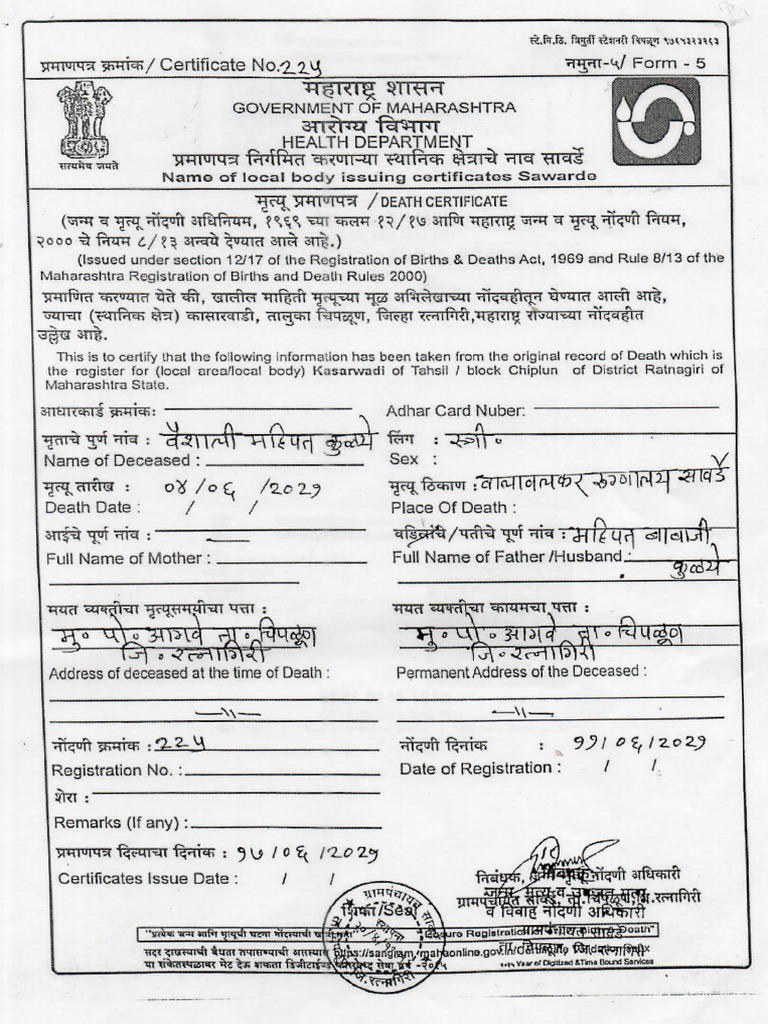 स्टे.मि.डि. त्रिमुर्ती स्टेशनरी चिपळूण
प्रमाणपत्र क्रमांक/ Certificate No. 225
नमुना-५/ Form - 5
महाराष्ट्र शासन
GOVERNMENT OF MAHARASHTRA
आरोग्य विभाग
HEALTH DEPARTMENT
सत्यमेव जयते
प्रमाणपत्र निर्गमित करणाऱ्या स्थानिक क्षेत्राचे नाव सावर्डे
Name of local body issuing certificates Sawarde
मृत्यू प्रमाणपत्र / DEATH CERTIFICATE
(जन्म व मृत्यू नोंदणी अधिनियम, १९६९ च्या कलम १२/१७ आणि महाराष्ट्र जन्म व मृत्यू नोंदणी नियम,
२००० चे नियम ८/१३ अन्वये देण्यात आले आहे.)
(Issued under section 12/17 of the Registration of Births & Deaths Act, 1969 and Rule 8/13 of the
Maharashtra Registration of Births and Death Rules 2000)
प्रमाणित करण्यात येते की, खालील माहिती मृत्यूच्या मूळ अभिलेखाच्या नोंदवहीतून घेण्यात आली आहे,
ज्याचा (स्थानिक क्षेत्र) कासारवाडी, तालुका चिपळूण, जिल्हा रत्नागिरी,महाराष्ट्र राज्याच्या नोंदवहीत
उल्लेख आहे.
This is to certify that the following information has been taken from the original record of Death which is
the register for (local area/local body) Kasarwadi of Tahsil / block Chiplun of District Ratnagiri of
Maharashtra State.
आधारकार्ड क्रमांक:
Adhar Card Nuber:
मृताचे पुर्ण नांव : वैशाली महिपत कुळये
लिंग : स्त्री.
Name of Deceased :
Sex :
मृत्यू तारीख : ०४/०६/२०२१
मृत्यू ठिकाण : वालावलकर रुग्णालय सावर्डे
Death Date : / /
Place Of Death :
आईचे पूर्ण नांव : —
वडिलांचे/पतीचे पूर्ण नांव : महिपत बाबाजी
Full Name of Mother :
Full Name of Father /Husband : कुळये
मयत व्यक्तीचा मृत्यूसमयीचा पत्ता :
मयत व्यक्तीचा कायमचा पत्ता :
मु. पो. आगवे ता. चिपळूण
मु. पो. आगवे ता. चिपळूण
जि. रत्नागिरी
जि. रत्नागिरी
Address of deceased at the time of Death :
Permanent Address of the Deceased :
—॥—
—॥—
नोंदणी क्रमांक : 225
नोंदणी दिनांक : ११/०६/२०२१
Registration No. :
Date of Registration : / /
शेरा :
Remarks (If any) :
प्रमाणपत्र दिल्याचा दिनांक : १७/०६/२०२१
Certificates Issue Date : / /
निबंधक, जन्म मृत्यू नोंदणी अधिकारी
ग्रामपंचायत सावर्डे, ता.चिपळूण,जि.रत्नागिरी
व विवाह नोंदणी अधिकारी
शिक्का/Seal
ग्रामपंचायत सावर्डे
ता. चिपळूण, जि. रत्नागिरी
"प्रत्येक जन्म आणि मृत्युची घटना
Registration
Death"
सदर दाखल्याची वैधता तपासण्याची असल्यास
या संकेतस्थळावर भेट देऊ शकता
Year of Digitized &Time Bound Services